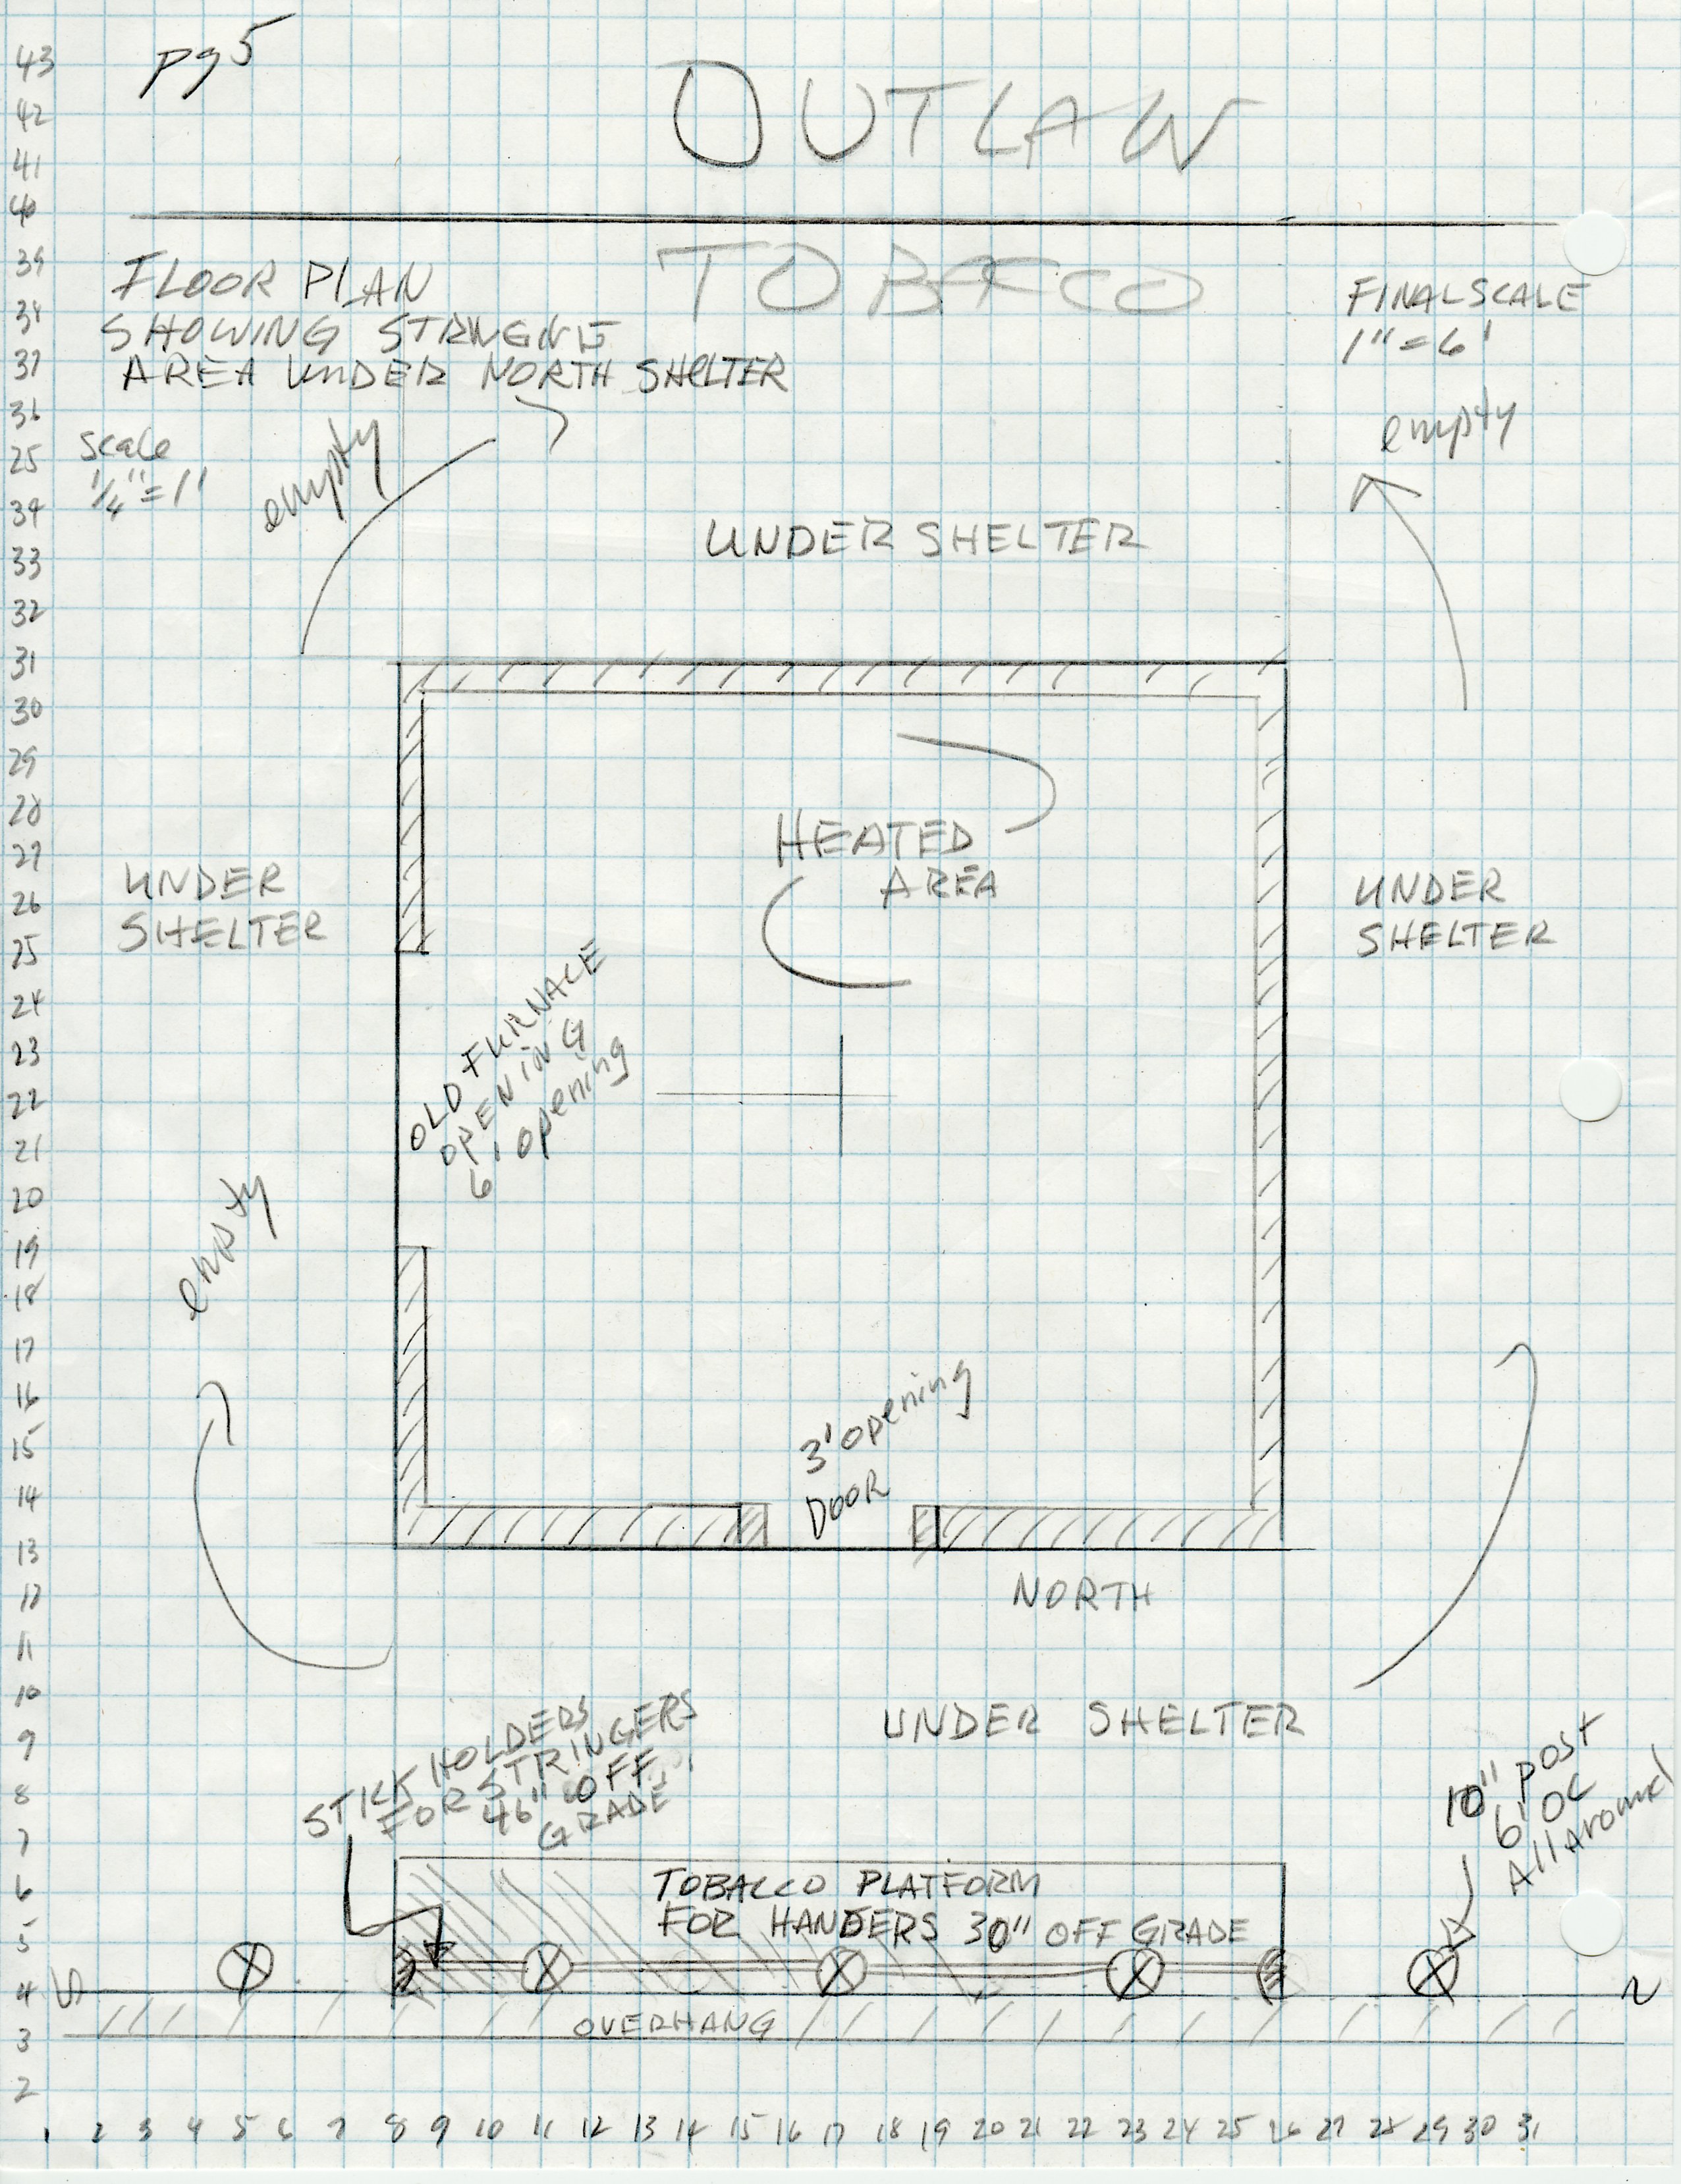 pg 5
OUTLAW
TOBACCO
FLOOR PLAN
SHOWING STRINGING
AREA UNDER NORTH SHELTER
FINAL SCALE
1" = 6'
scale
1/4" = 1'
empty
empty
UNDER SHELTER
HEATED
AREA
UNDER
SHELTER
UNDER
SHELTER
OLD FURNACE
OPENING
6' opening
empty
3' opening
DOOR
NORTH
UNDER SHELTER
STICK HOLDERS
FOR STRINGERS
46" OFF
GRADE
10" post
6' OC
All around
TOBACCO PLATFORM
FOR HANDERS 30" OFF GRADE
OVERHANG
43
42
41
40
39
38
37
36
25
34
33
32
31
30
29
28
27
26
25
24
23
22
21
20
19
18
17
16
15
14
13
12
11
10
9
8
7
6
5
4
3
2
1 2 3 4 5 6 7 8 9 10 11 12 13 14 15 16 17 18 19 20 21 22 23 24 25 26 27 28 29 30 31